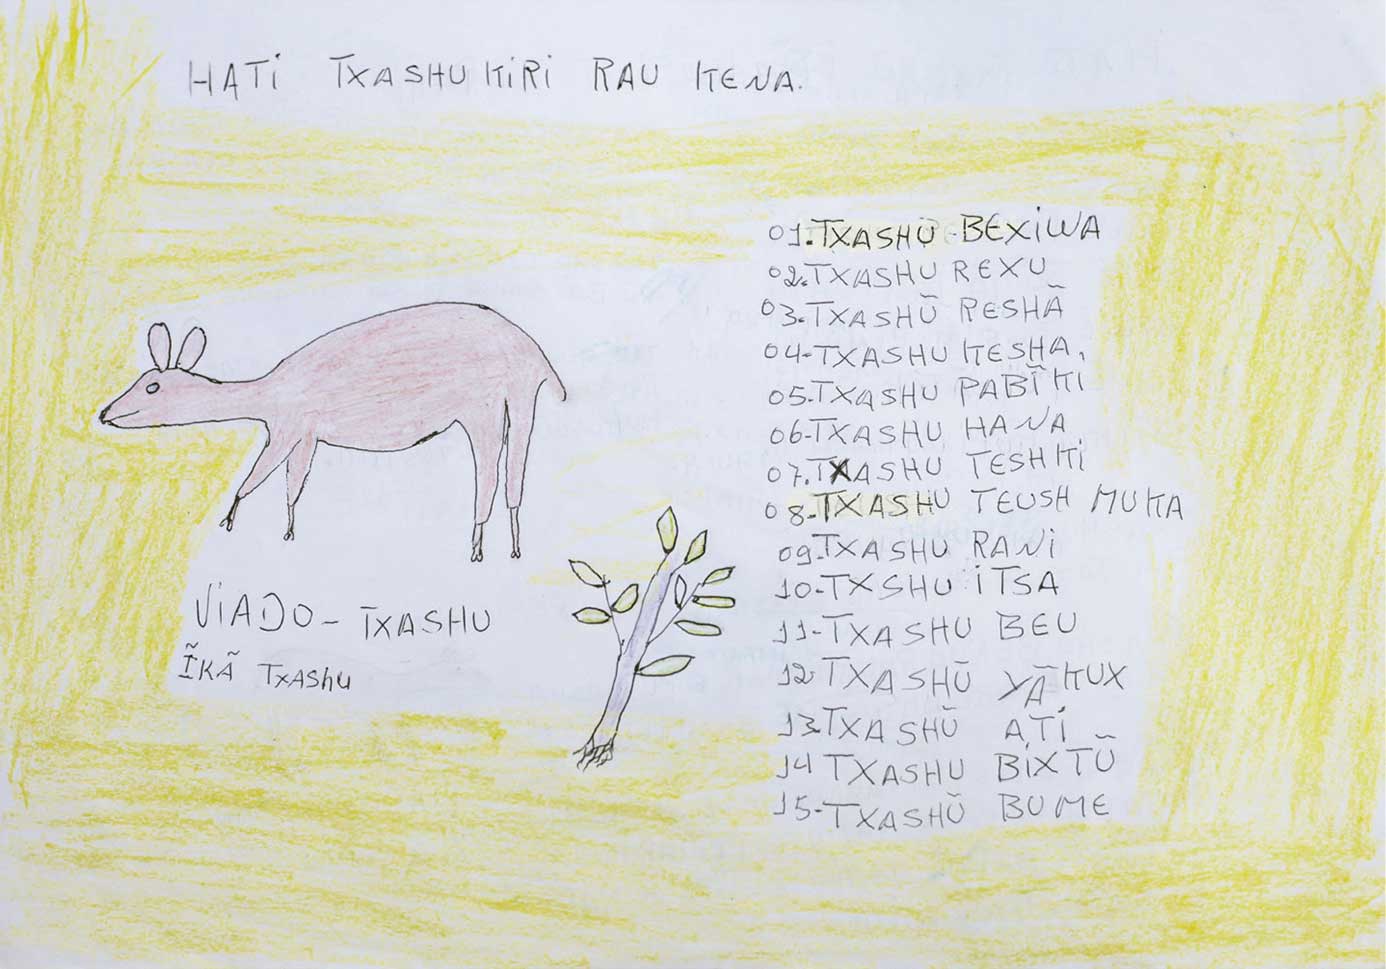 HATI TXASHU KIRI RAU KENA.
01. TXASHŨ - BEXIWA
02. TXASHU REXU
03. TXASHŨ RESHÃ
04- TXASHU KESHA.
05. TXASHU PABĨKI
06- TXASHU HANA
07. TXASHU TESHKI
08- TXASHU TEUSH MUKA
09- TXASHU RANI
10- TXSHU ITSA
11- TXASHU BEU
12- TXASHŨ YÃKUX
13. TXASHŨ ATI
14 TXASHU BIXTŨ
15- TXASHŨ BUME
VIADO - TXASHU
ĨKÃ TXASHU